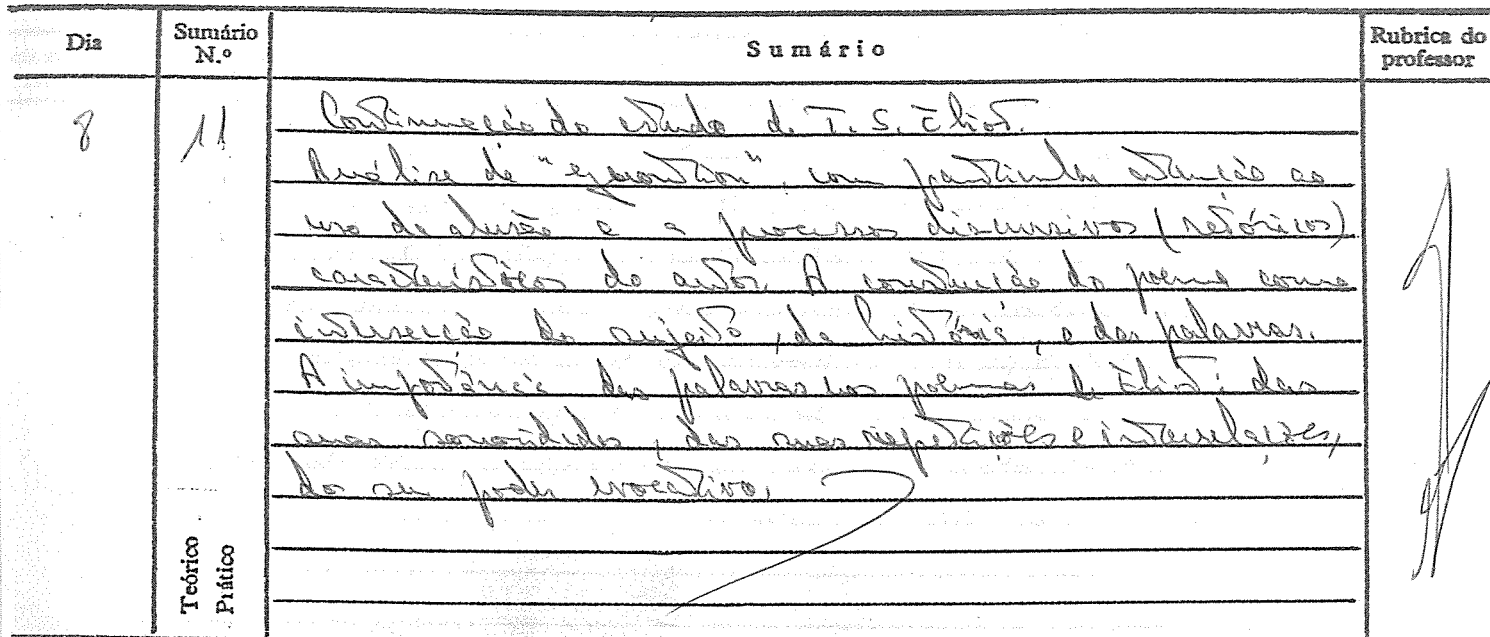 Dia
Sumário N.º
Sumário
Rubrica do professor
8
11
Continuação do estudo de T. S. Eliot.
Análise de "gerontion", com particular atenção ao
uso da alusão e a processos discursivos (retóricos)
característicos do autor. A construção do poema como
intersecção do sujeito, da história, e das palavras.
A importância das palavras nos poemas de Eliot: das
suas sonoridades, das suas repetições e interrelações,
do seu poder evocativo.
Teórico
Prático